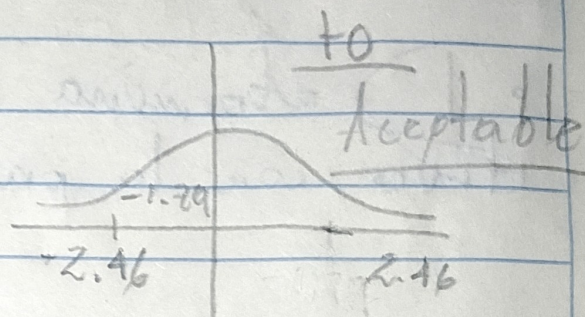 to
Acceptable
-1.29
-2.46 2.46